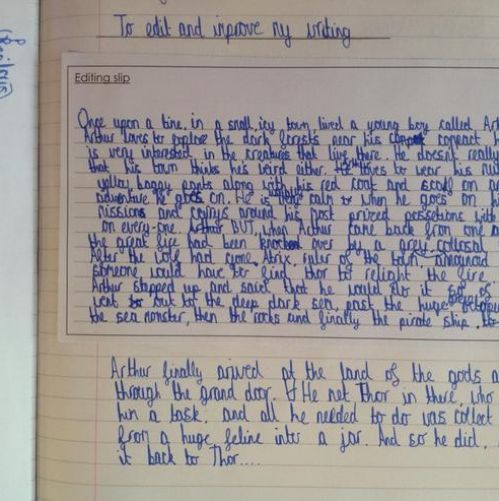 To edit and inprove my writing
Editing slip
Once upon a time, in a small, icy town lived a young boy called Art
Arthur loves to explore the dark forists near his compact h
is very interested in the creatures that live there. He doesnt really
that his town thinks his weird either. He loves to wear his
yellow baggy pants along with his red coat and scarf on an
adventure he goes on. He is usually very calm when he goes on hi
missions and carrys around his most prized possetions with
on every-one. Arthur BUT, when Arthur came back from one o
the great fire had been knocked over by a grey, collosal
After the wolf had gone, Atrix, ruler of the town anounced
someone would have to find thor to relight the fire.
Arthur stepped up and said that he would do it so of
went out to the deep dark sea, past the huge octopu
the sea monster, then the rocks and finally the pirate ship, to
Arthur finally arived at the land of the gods a
through the grand door. He met Thor in there, who
him a task. and all he needed to do was collect
from a huge feline into a jar. And so he did.
it back to Thor....